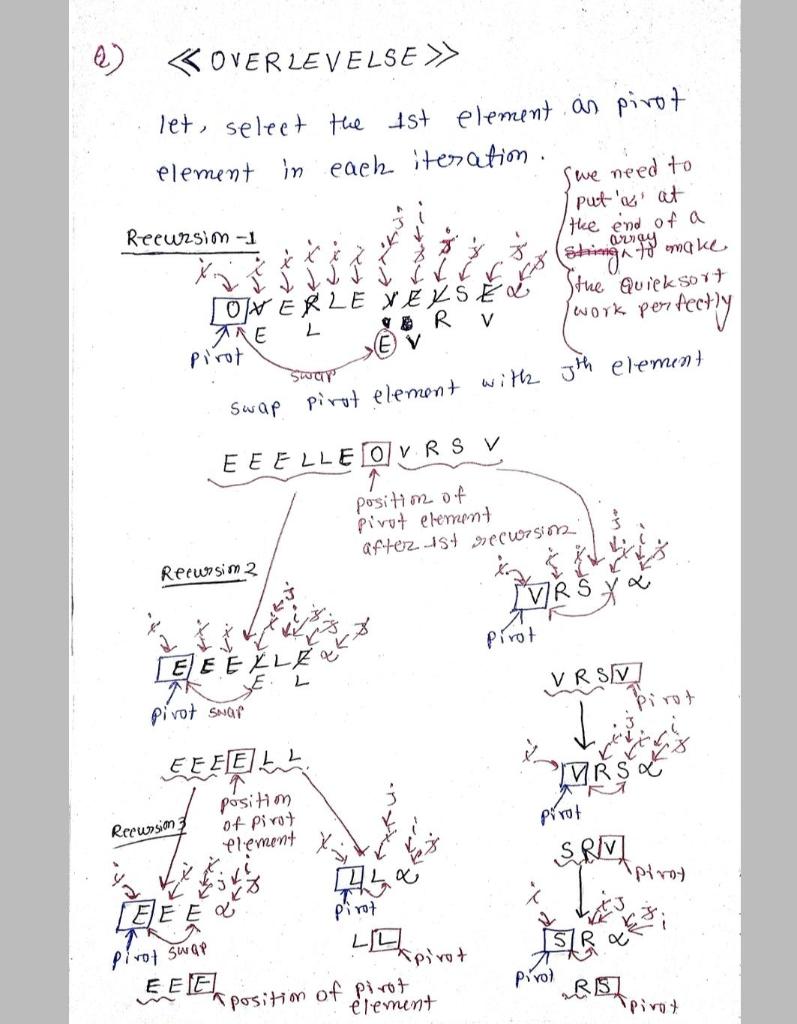 Q) << OVERLEVELSE >>
let, select the 1st element as pivot
element in each iteration.
{we need to
put 'α' at
the end of a
array
to make
the Quicksort
work perfectly
Recursion -1
j i
O V E R L E V E V S E α
E L E V R V
pivot
swap
swap pivot element with jth element
E E E L L E O V R S V
position of
pivot element
after 1st recursion
Recursion 2
E E E V L E α
E L
pivot swap
V R S V α
pivot
V R S V
pivot
E E E E L L
position
of pivot
element
V R S α
pivot
Recursion 3
L L α
pivot
S R V
pivot
E E E α
pivot swap
L L
pivot
S R α
pivot
E E E
position of pivot
element
R S
pivot